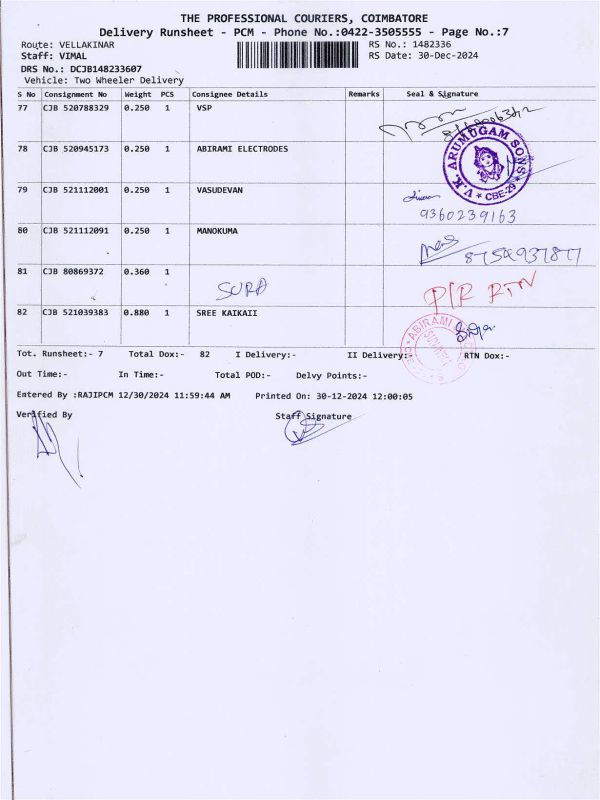 THE PROFESSIONAL COURIERS, COIMBATORE
Delivery Runsheet - PCM - Phone No.:0422-3505555 - Page No.:7
Route: VELLAKINAR RS No.: 1482336
Staff: VIMAL RS Date: 30-Dec-2024
DRS No.: DCJB148233607
Vehicle: Two Wheeler Delivery
S No Consignment No Weight PCS Consignee Details Remarks Seal & Signature
77 CJB 520788329 0.250 1 VSP
78 CJB 520945173 0.250 1 ABIRAMI ELECTRODES
V.K. ARUMUGAM SONS * CBE-29 *
79 CJB 521112001 0.250 1 VASUDEVAN
9360239163
80 CJB 521112091 0.250 1 MANOKUMA
81 CJB 80869372 0.360 1
P/R RTN
82 CJB 521039383 0.880 1 SREE KAIKAII
ABIRAMI
Tot. Runsheet:- 7 Total Dox:- 82 I Delivery:- II Delivery:- RTN Dox:-
Out Time:- In Time:- Total POD:- Delvy Points:-
Entered By :RAJIPCM 12/30/2024 11:59:44 AM Printed On: 30-12-2024 12:00:05
Verified By Staff Signature